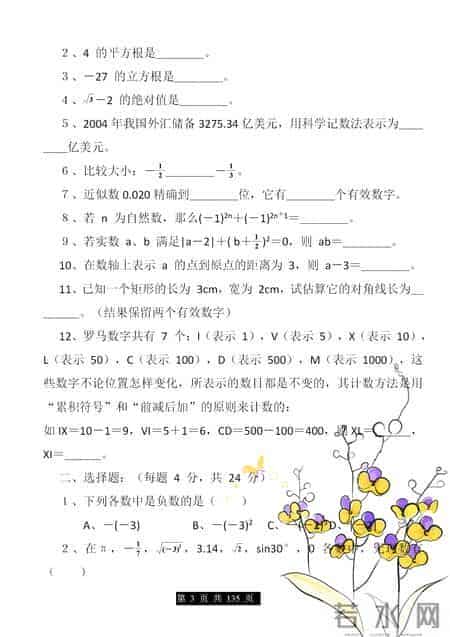 2、4 的平方根是________。
3、－27 的立方根是________。
4、－2 的绝对值是________。
5、2004年我国外汇储备3275.34亿美元，用科学记数法表示为____
____亿美元。
6、比较大小：－________－。
7、近似数0.020精确到________位，它有________个有效数字。
8、若 n 为自然数，那么(－1)²ⁿ＋(－1)²ⁿ⁺¹＝________。
9、若实数 a、b 满足|a－2|＋( b＋½)²＝0，则 ab＝________。
10、在数轴上表示 a 的点到原点的距离为 3，则 a－3＝________。
11、已知一个矩形的长为 3cm，宽为 2cm，试估算它的对角线长为__
______。（结果保留两个有效数字）
12、罗马数字共有 7 个：I（表示 1），V（表示 5），X（表示 10），
L（表示 50），C（表示 100），D（表示 500），M（表示 1000），这
些数字不论位置怎样变化，所表示的数目都是不变的，其计数方法是用
“累积符号”和“前减后加”的原则来计数的：
如IX＝10－1＝9，VI＝5＋1＝6，CD＝500－100＝400，则XL＝______，
XI＝______。
二、选择题：（每题 4 分，共 24 分）
1、下列各数中是负数的是（ ）
A、－(－3) B、－(－3)² C、－(－2)³ D、
2、在π，－，，3.14，，sin30°，0 各数中，无理数有
（ ）
第 3 页 共 135 页
若水网